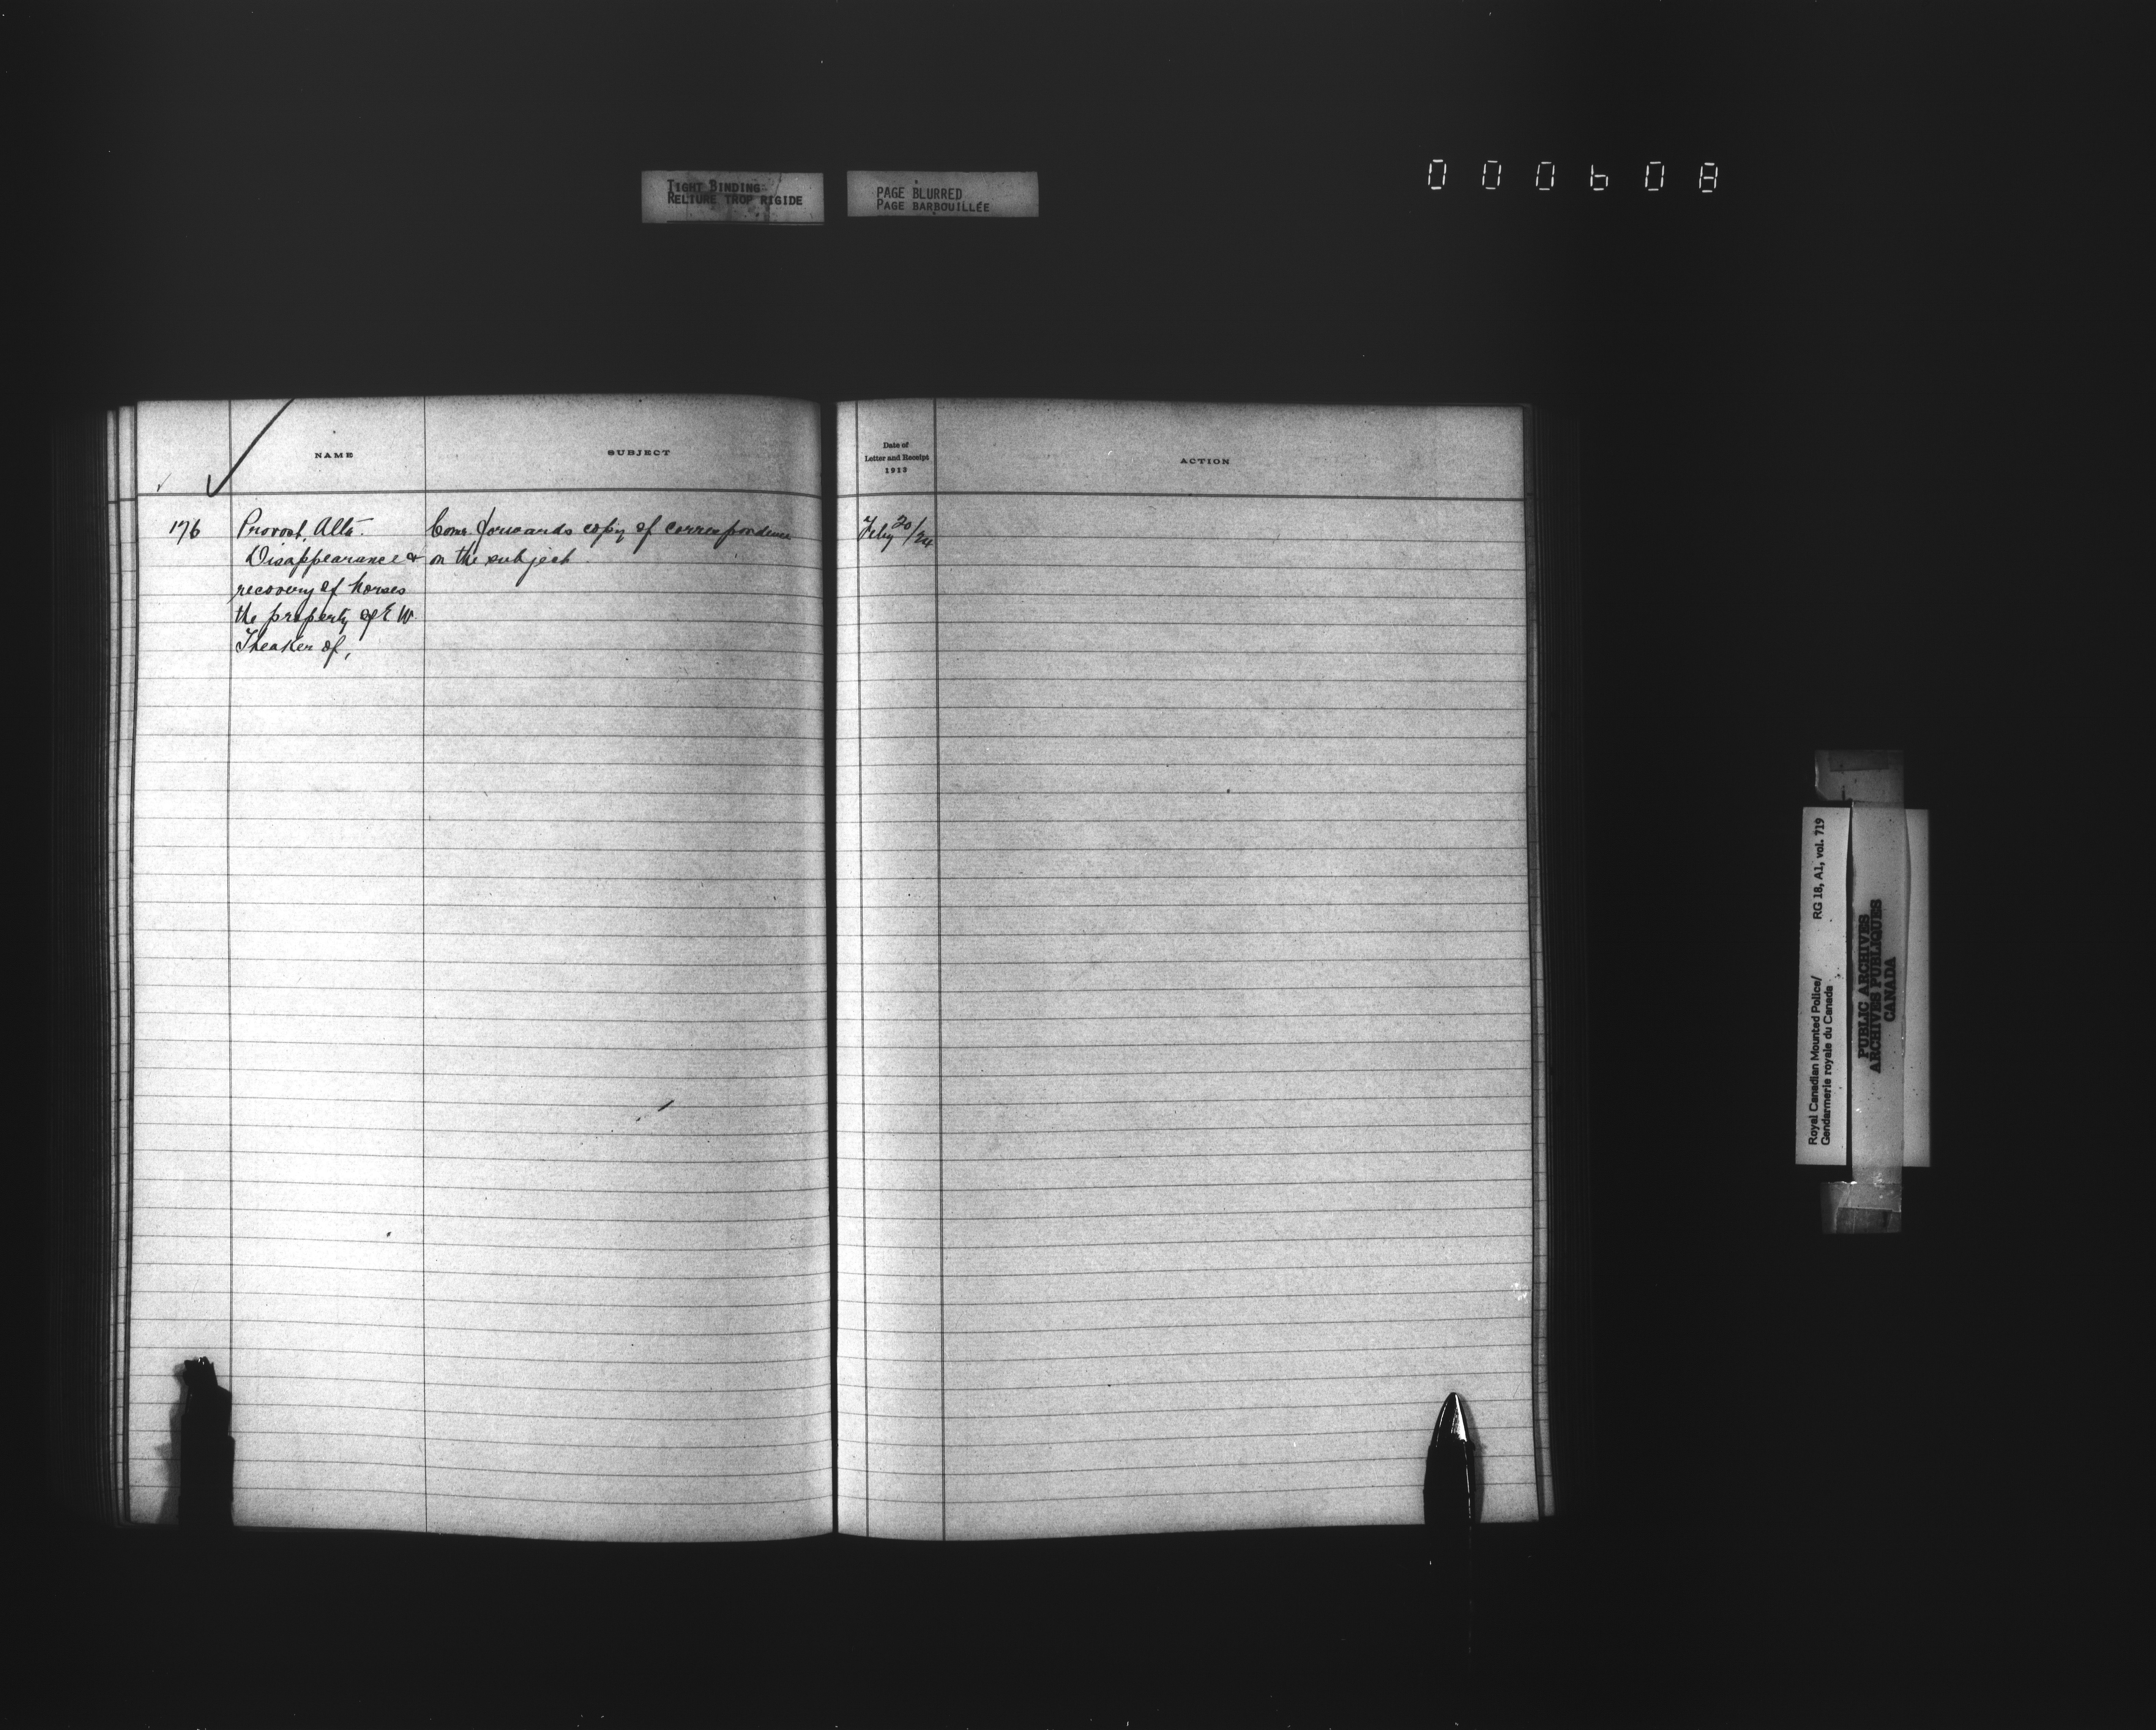 TIGHT BINDING
RELIURE TROP RIGIDE
PAGE BLURRED
PAGE BARBOUILLÉE
000608
NAME
SUBJECT
Date of
Letter and Receipt
1913
ACTION
176
Provost, Alta.
Disappearance &
recovery of horses
the property of E W.
Theaker of,
Comr. forwards copy of correspondence
on the subject.
Feby 20/24
Royal Canadian Mounted Police/
Gendarmerie royale du Canada
RG 18, A1, vol. 719
PUBLIC ARCHIVES
ARCHIVES PUBLIQUES
CANADA